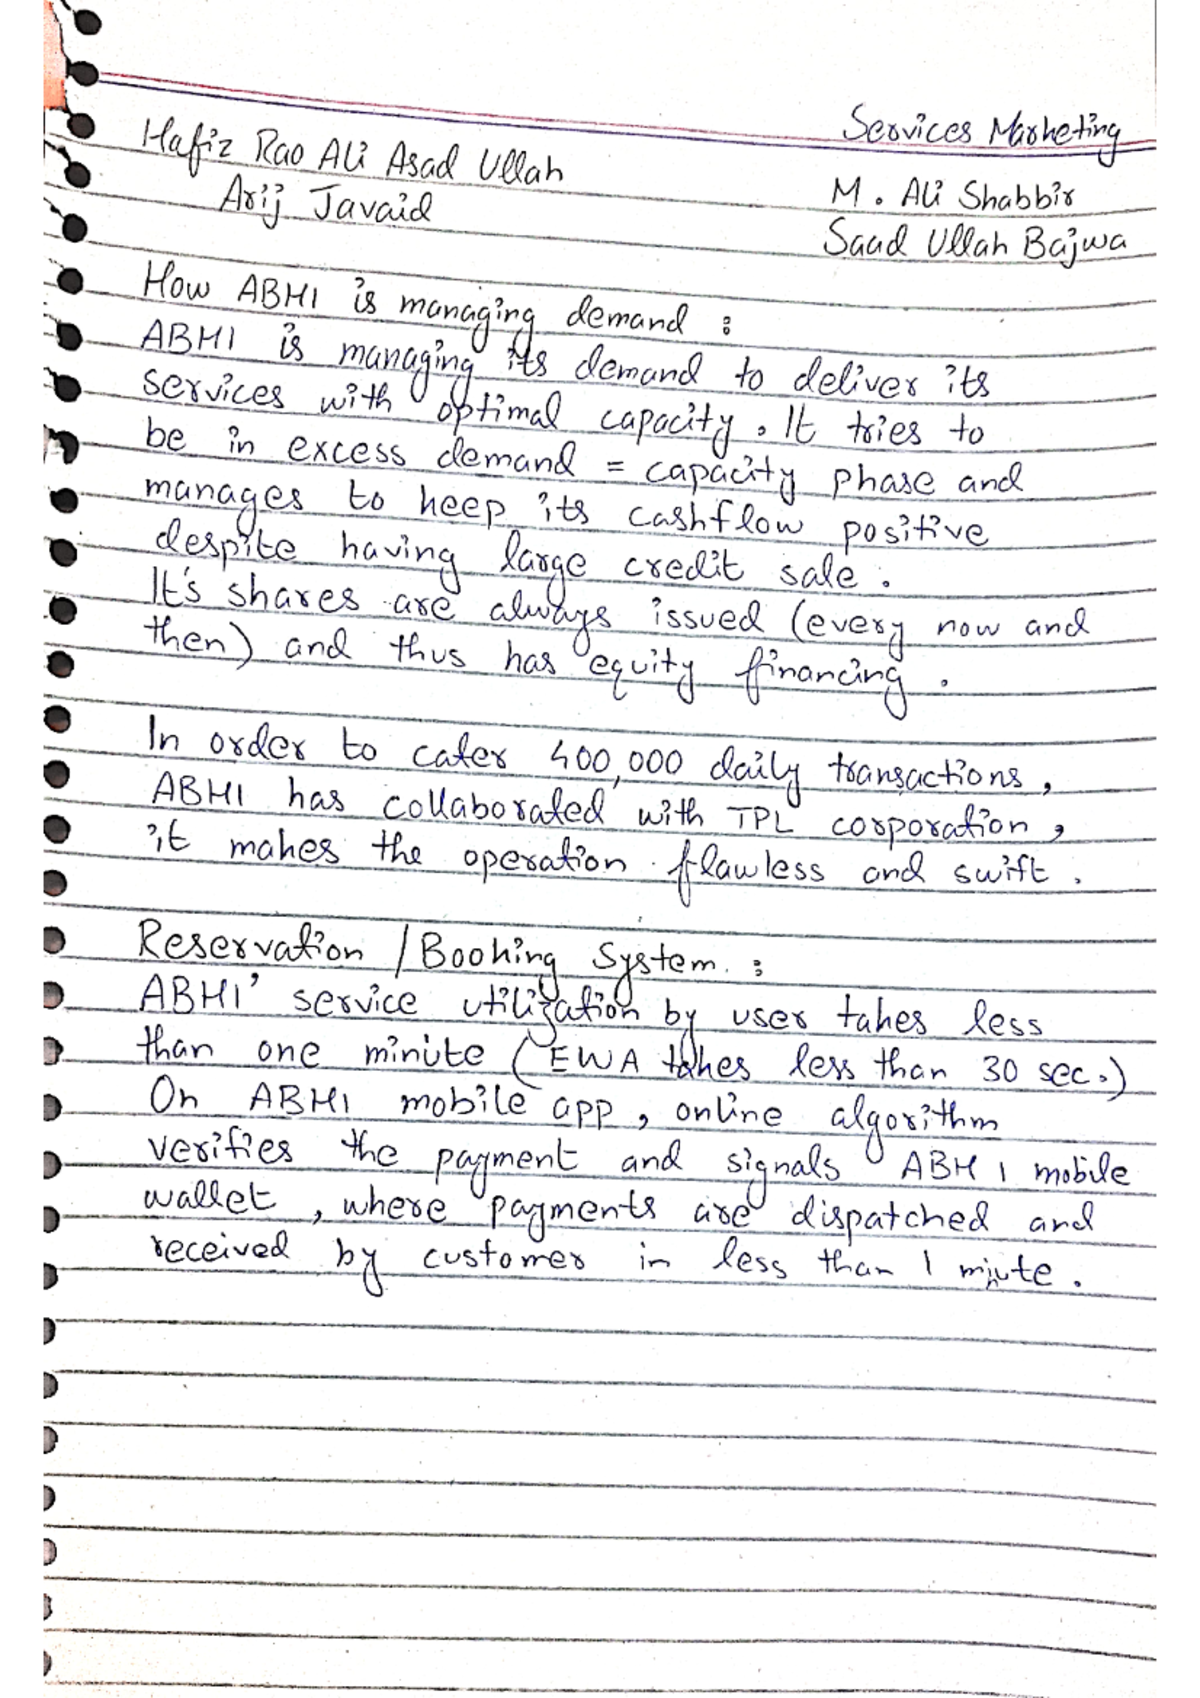 Services Marketing
Hafiz Rao Ali Asad Ullah
M. Ali Shabbir
Arij Javaid
Saad Ullah Bajwa
How ABHI is managing demand :
ABHI is managing its demand to deliver its
services with optimal capacity. It tries to
be in excess demand = capacity phase and
manages to keep its cashflow positive
despite having large credit sale.
It's shares are always issued (every now and
then) and thus has equity financing.
In order to cater 400,000 daily transactions,
ABHI has collaborated with TPL corporation,
it makes the operation flawless and swift.
Reservation / Booking System :
ABHI' service utilization by user takes less
than one minute (EWA takes less than 30 sec.)
On ABHI mobile app, online algorithm
verifies the payment and signals ABHI mobile
wallet, where payments are dispatched and
received by customer in less than 1 minute.